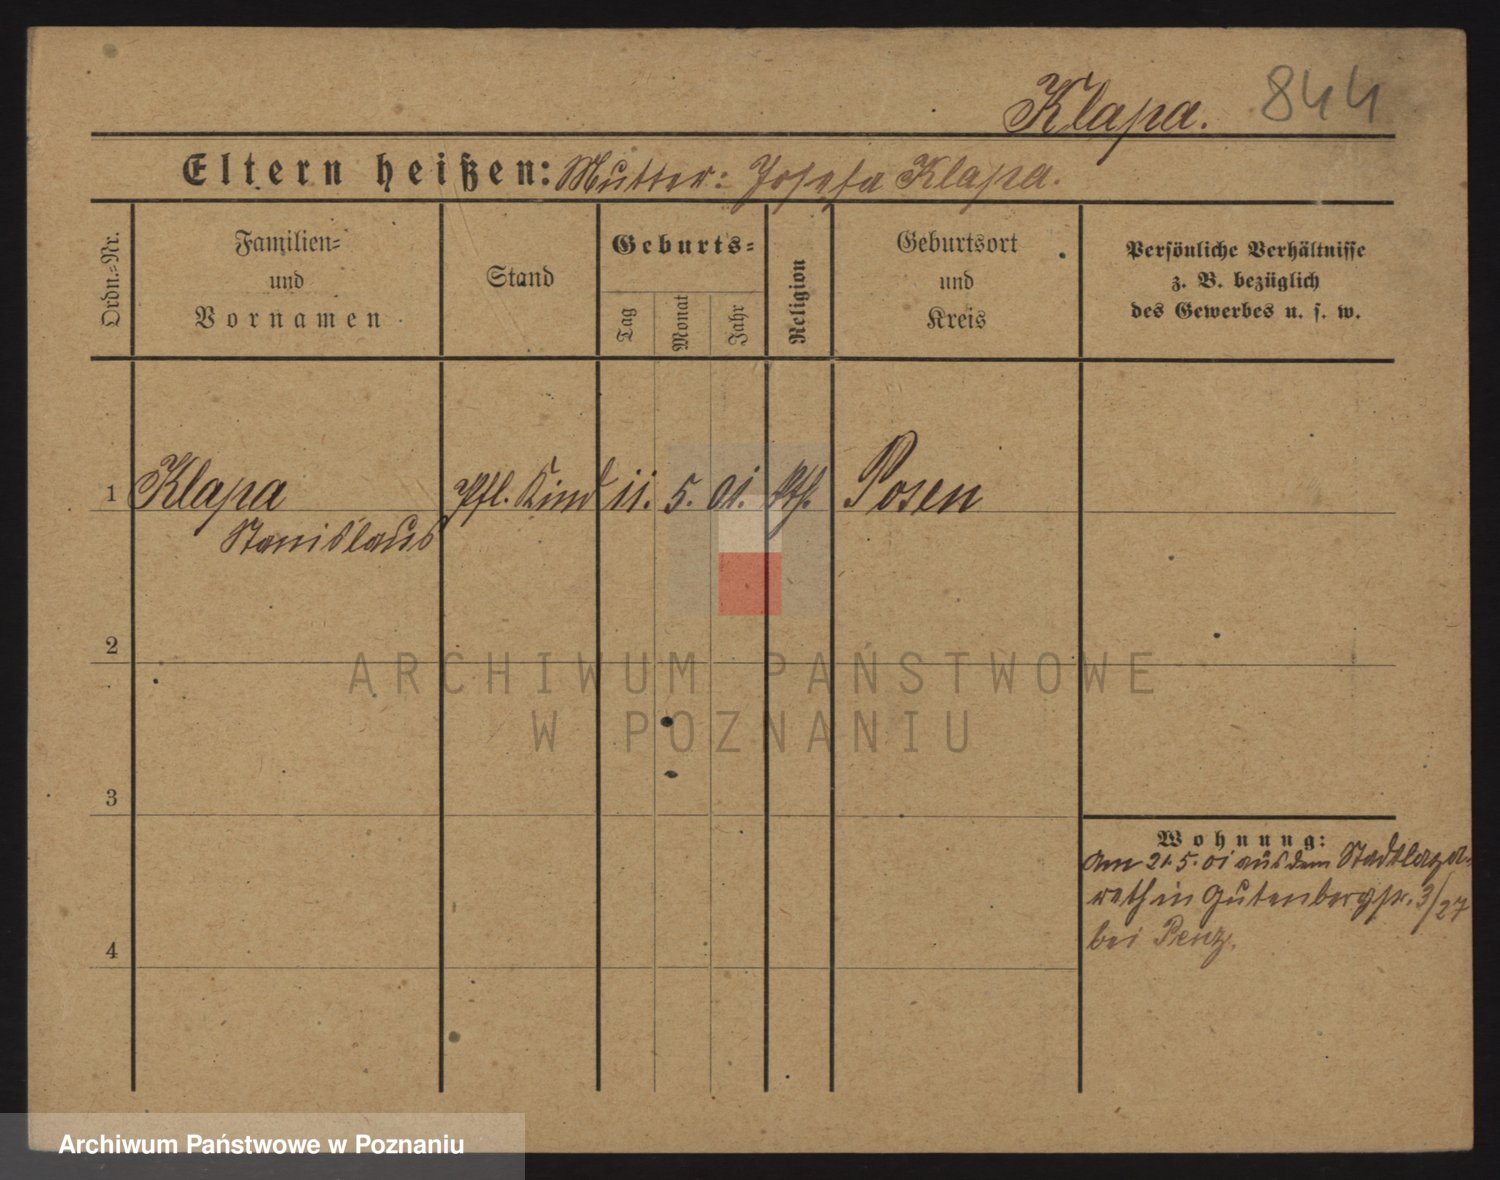 Klapa. 844
Eltern heißen: Mutter: Josefa Klapa.
Ordn.-Nr.
Familien-
und
Vornamen
Stand
Geburts-
Tag
Monat
Jahr
Religion
Geburtsort
und
Kreis
Persönliche Verhältnisse
z. B. bezüglich
des Gewerbes u. s. w.
1 Klapa Pfl. Kind 11. 5. 01. kth. Posen
Stanislaus
2
3
4
Wohnung:
Am 21.5.01 aus dem Stadtlaza-
reth in Gutenbergstr. 3/27
bei Penz.
ARCHIWUM PAŃSTWOWE
W POZNANIU
Archiwum Państwowe w Poznaniu